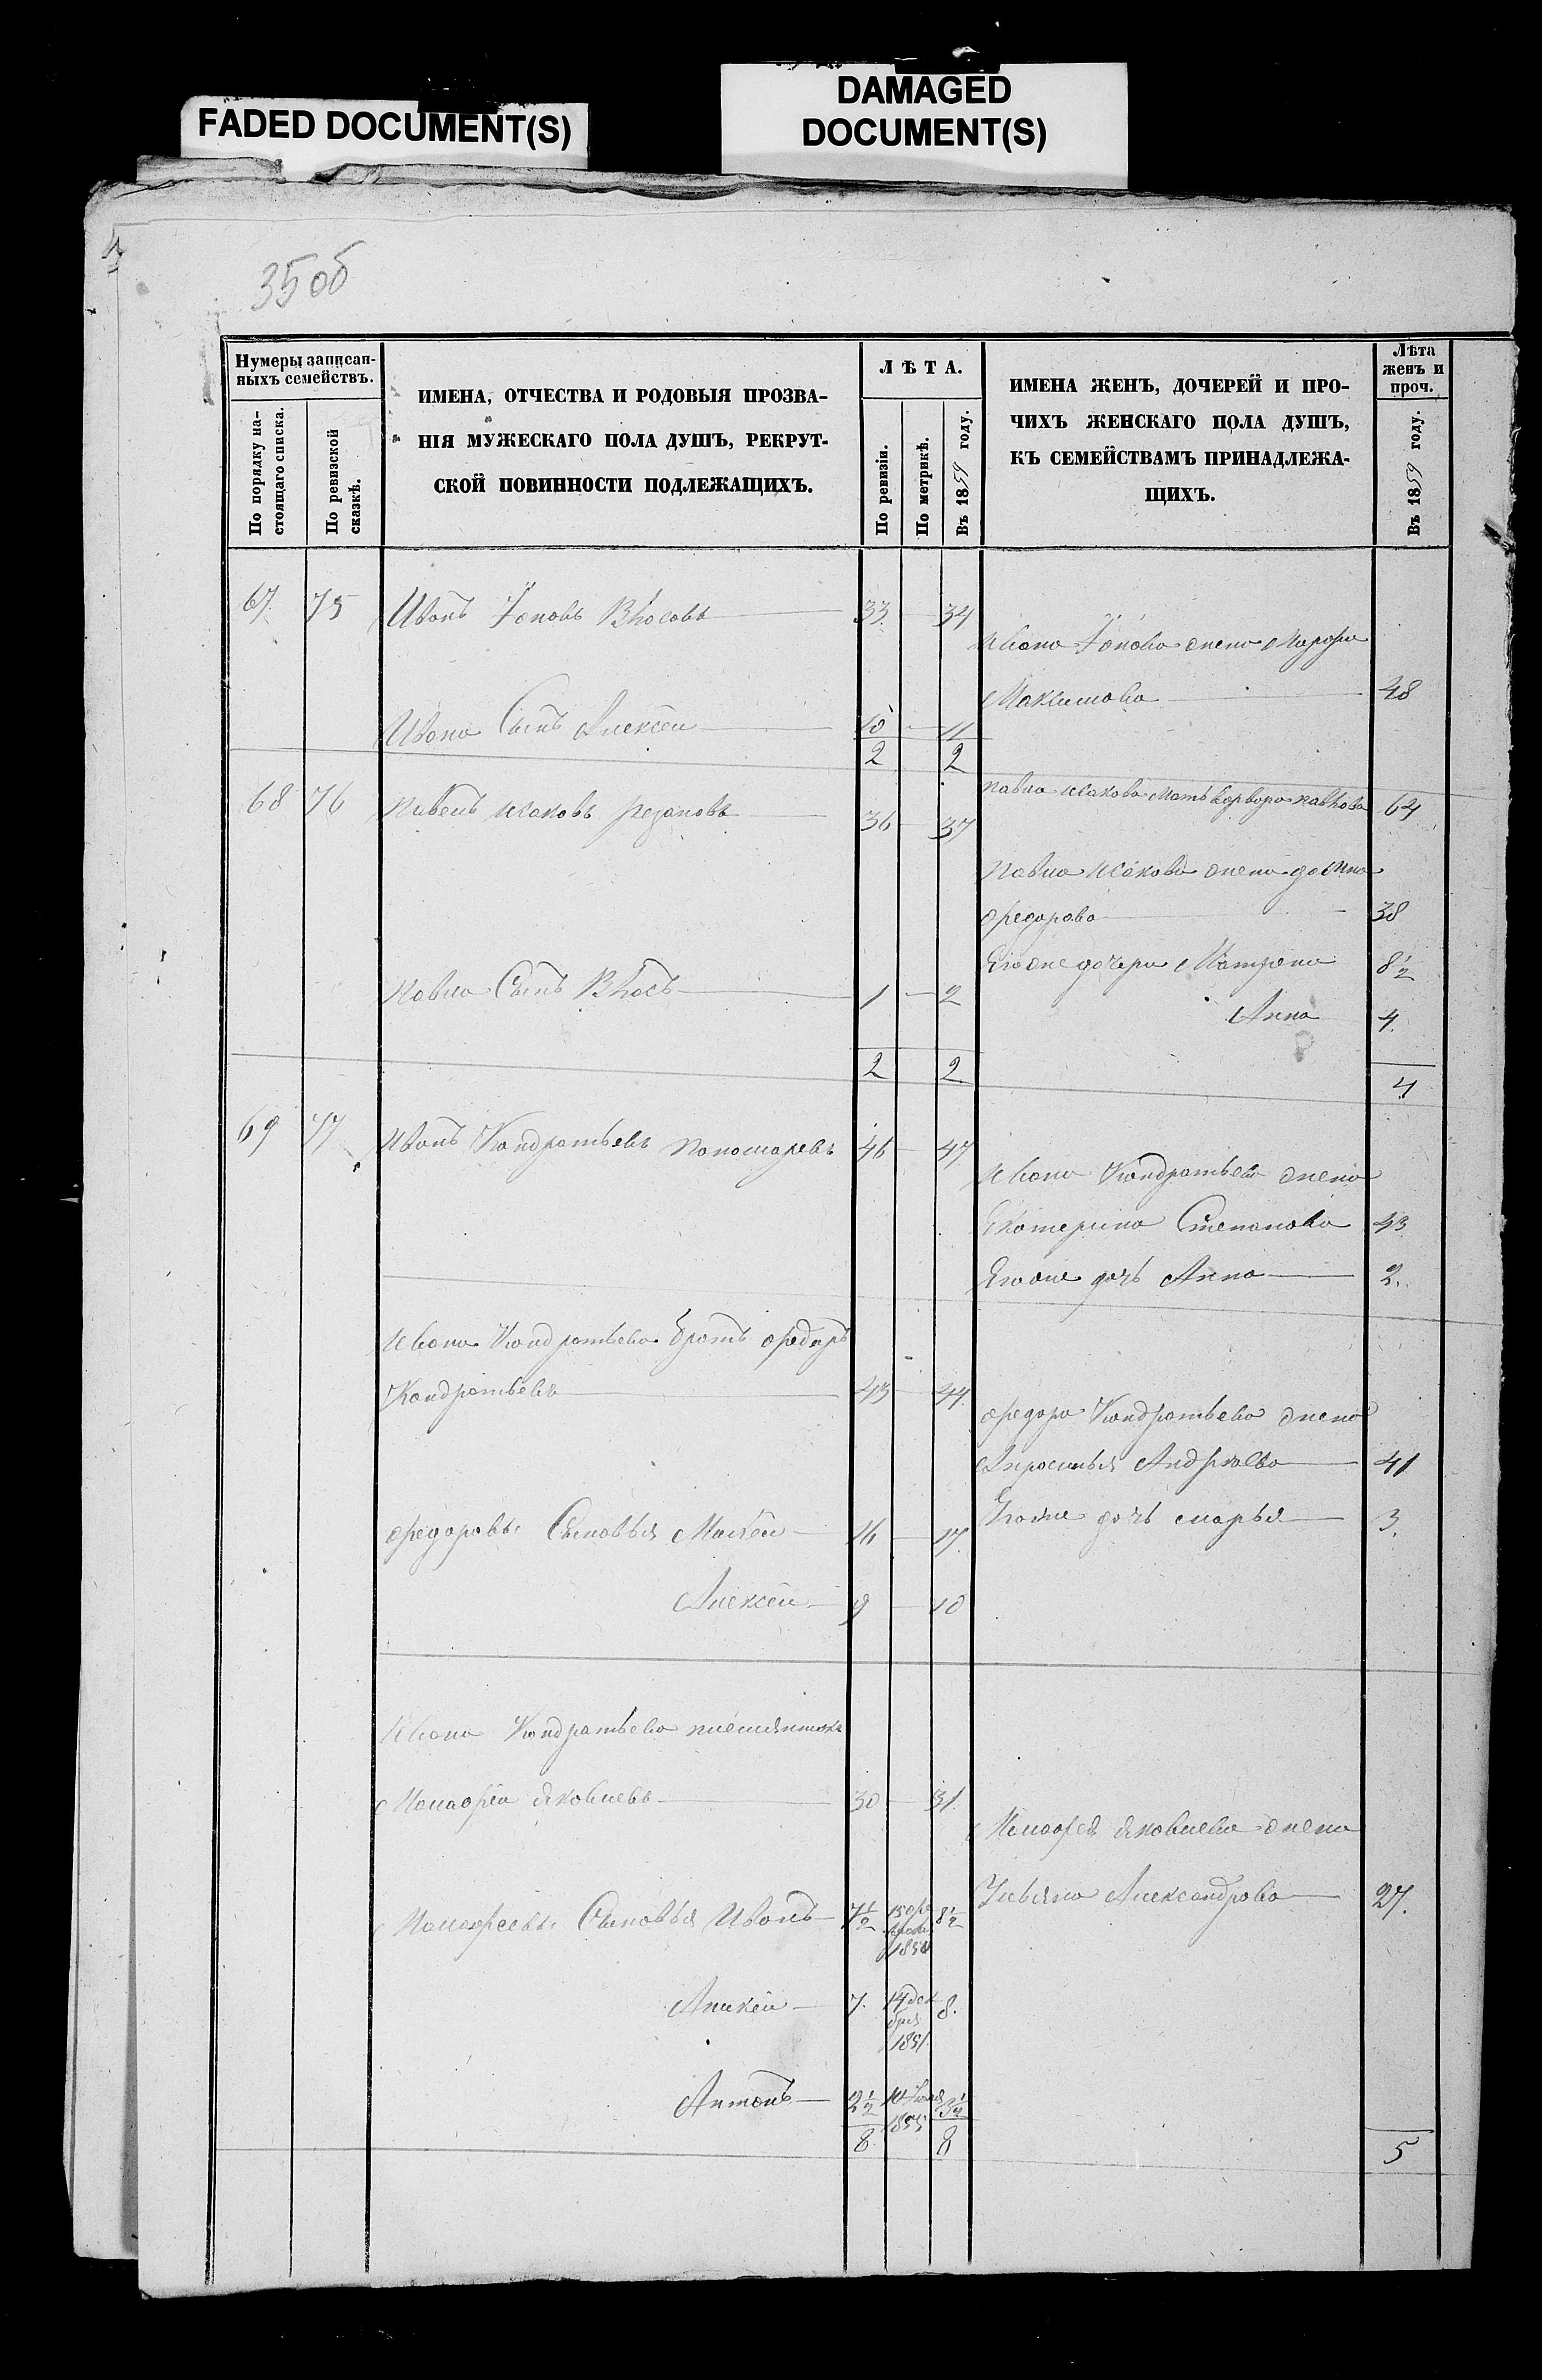 FADED DOCUMENT(S)
DAMAGED
DOCUMENT(S)
35об
Нумеры записан-
ныхъ семействъ.
По порядку на-
стоящаго списка.
По ревизской
сказкѣ.
ИМЕНА, ОТЧЕСТВА И РОДОВЫЯ ПРОЗВА-
НІЯ МУЖЕСКАГО ПОЛА ДУШЪ, РЕКРУТ-
СКОЙ ПОВИННОСТИ ПОДЛЕЖАЩИХЪ.
ЛѢТА.
По ревизіи.
По метрикѣ.
Въ 1859 году.
ИМЕНА ЖЕНЪ, ДОЧЕРЕЙ И ПРО-
ЧИХЪ ЖЕНСКАГО ПОЛА ДУШЪ,
КЪ СЕМЕЙСТВАМЪ ПРИНАДЛЕЖА-
ЩИХЪ.
Лѣта
женъ и
проч.
Въ 1859 году.
67 75 Иванъ Іоновъ Власовъ 33 34
Ивана Іонова жена Марфа
Максимова 48
Ивана Сынъ Алексѣй 10 11
2 2
68 76 Павелъ Исаковъ Резановъ 36 37
Павла Исакова Мать Варвара Павлова 64
Павла Исакова жена
Федорова 38
Егоже дочери Матрена 8 1/2
Павла Сынъ Власъ 1 2
Анна 4
2 2
4
69 77 Иванъ Кондратьевъ Пономаревъ 46 47
Ивана Кондратьева жена
Екатерина Степанова 43
Егоже дочь Анна 2.
Ивана Кондратьева братъ Федоръ
Кондратьевъ 43 44
Федора Кондратьева жена
Апросинья Андреева 41
Егоже дочь Марья 3.
Федоровы Сыновья Матвей 16 17
Алексей 9 10
Ивана Кондратьева племянникъ
Яковлевъ 30 31.
Яковлева жена
Ульяна Александрова 27.
Сыновья Иванъ 7 1/2 8 1/2
Аникей 7. 14 дека
бря
1851 8.
Антонъ 2 1/2 3 1/2
1855
8 8
5